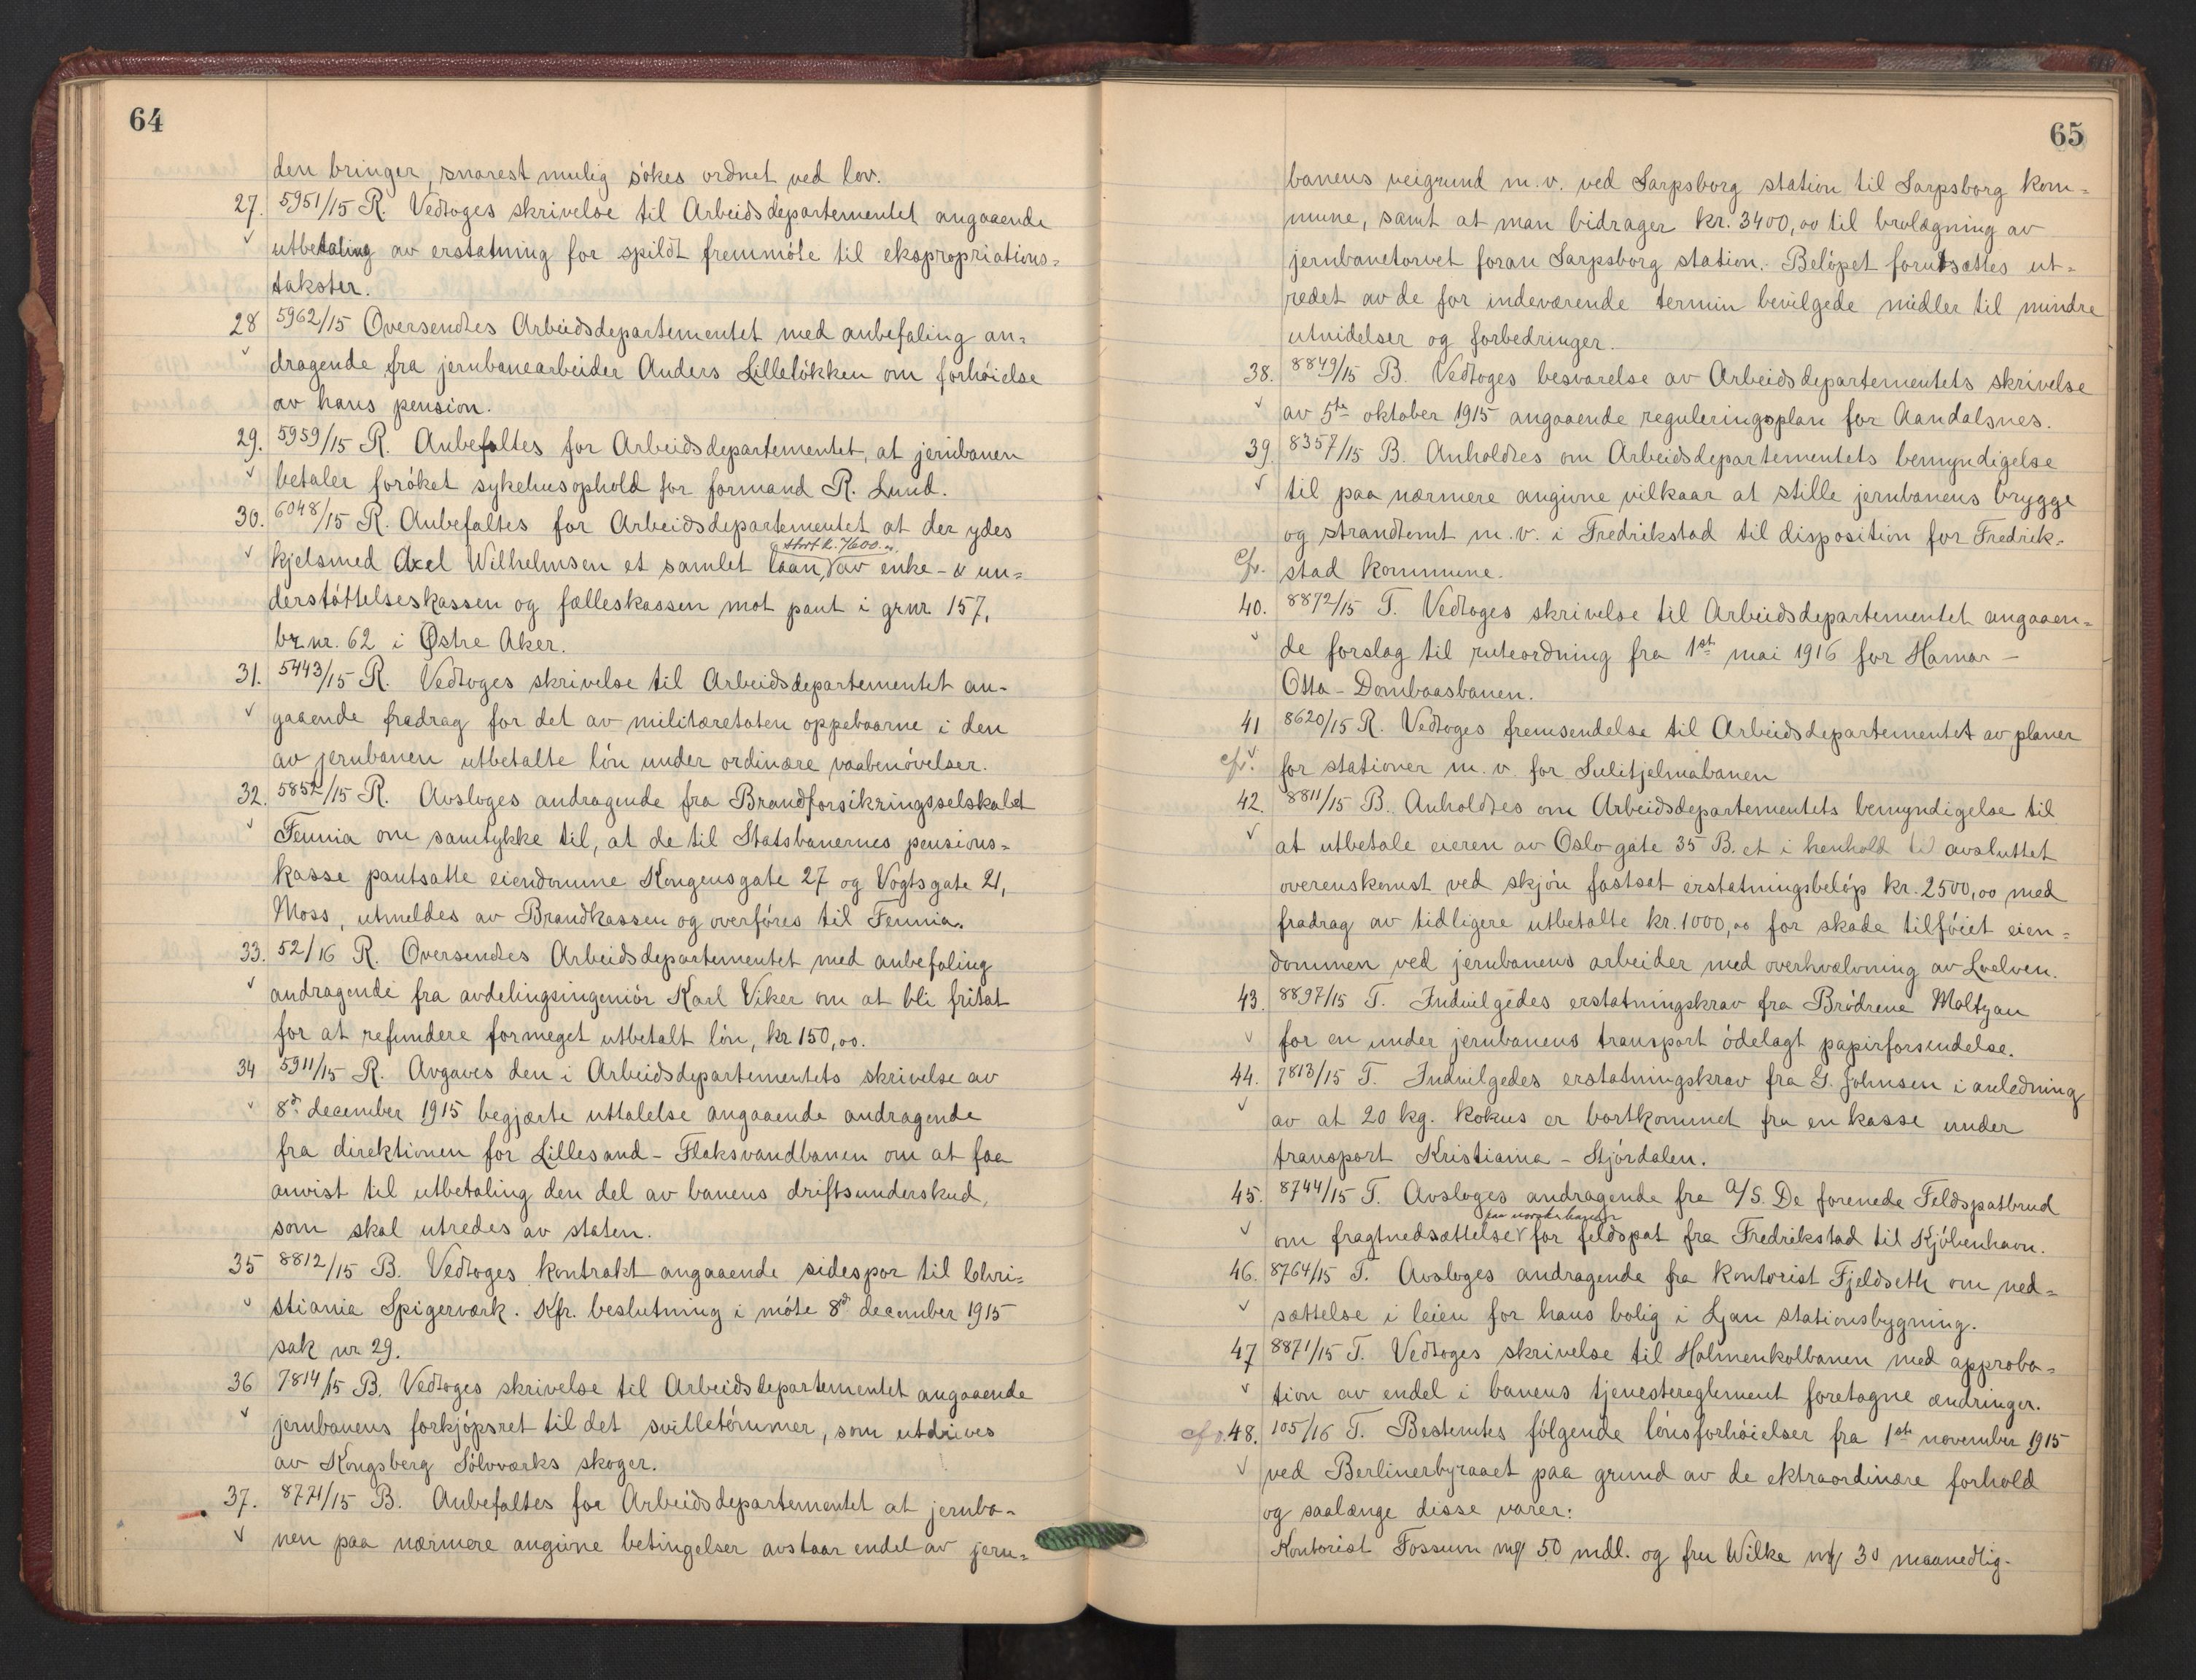 64
den bringer, snarest mulig søkes ordnet ved lov.
27. 5951/15 R. Vedtoges skrivelse til Arbeidsdepartementet angaaende
utbetaling av erstatning for spildt fremmøte til ekspropriations=
takster.
28 5962/15 Oversendtes Arbeidsdepartementet med anbefaling an=
dragende fra jernbanearbeider Anders Lilleløkken om forhøielse
av hans pension.
29. 5959/15 R. Anbefaltes for Arbeidsdepartementet, at jernbanen
betaler forøket sykehusophold for formand R. Lund.
30. 6048/15 R. Anbefaltes for Arbeidsdepartementet at der ydes
stort kr. 7600.
kjelsmed Axel Wilhelmsen et samlet laan, av enke- & un=
derstøttelseskassen og fælleskassen mot pant i grnr. 157,
br.nr. 62 i Østre Aker.
31. 5443/15 R. Vedtoges skrivelse til Arbeidsdepartementet an-
gaaende fradrag for det av militæretaten oppebaarne i den
av jernbanen utbetalte løn under ordinære vaabenøvelser.
32. 5852/15 R. Avsloges andragende fra Brandforsikringsselskabet
Fennia om samtykke til, at de til Statsbanernes pensions=
kasse pantsatte eiendomme Kongensgate 27 og Vogtsgate 21,
Moss, utmeldes av Brandkassen og overføres til Fennia.
33. 52/16 R. Oversendtes Arbeidsdepartementet med anbefaling
andragende fra avdelingsingeniør Karl Viker om at bli fritat
for at refundere formeget utbetalt løn, kr 150,00.
34 5911/15 R. Avgaves den i Arbeidsdepartementets skrivelse av
8de december 1915 begjærte uttalelse angaaende andragende
fra direktionen for Lillesand - Flaksvandbanen om at faa
anvist til utbetaling den del av banens driftsunderskud,
som skal utredes av staten.
35 8812/15 B. Vedtoges kontrakt angaaende sidespor til Chri=
stiania Spigerverk. Kfr. beslutning i møte 8de december 1915
sak nr 29.
36 7814/15 B. Vedtoges skrivelse til Arbeidsdepartementet angaaende
jernbanens forkjøpsret til det svilletømmer, som utdrives
av Kongsberg Sølvværks skoger.
37. 8771/15 B. Anbefaltes for Arbeidsdepartementet at jernba-
nen paa nærmere angivne betingelser avstaar endel av jern=
65
banens veigrund m.v. ved Sarpsborg station til Sarpsborg kom=
mune, samt at man bidrager kr. 3400,00 til brolægning av
jernbanetorvet foran Sarpsborg station. Beløpet forutsættes ut=
redet av de for indeværende termin bevilgede midler til mindre
utvidelser og forbedringer.
38. 8849/15 B. Vedtoges besvarelse av Arbeidsdepartementets skrivelse
av 5te oktober 1915 angaaende reguleringsplan for Aandalsnes.
39. 8357/15 B. Anholdtes om Arbeidsdepartementets bemyndigelse
til paa nærmere angivne vilkaar at stille jernbanens brygge
og strandtomt m.v. i Fredrikstad til disposition for Fredrik=
cfr. stad kommune.
40. 8872/15 T. Vedtoges skrivelse til Arbeidsdepartementet angaaen=
de forslag til ruteordning fra 1ste mai 1916 for Hamar -
Otta - Dombaasbanen.
41 8620/15 R. Vedtoges fremsendelse til Arbeidsdepartementet av planer
cfr. for stationer m.v. for Sulitjelmabanen
42. 8811/15 B. Anholdtes om Arbeidsdepartementets bemyndigelse til
at utbetale eieren av Oslo gate 35 B. et i henhold til avsluttet
overenskomst ved skjøn fastsat erstatningsbeløp kr. 2500,00 med
fradrag av tidligere utbetalte kr. 1000,00 for skade tilføiet eien=
dommen ved jernbanens arbeider med overhvælvning av Loelven.
43. 8897/15 T. Indvilgedes erstatningskrav fra Brødrene Moltzau
for en under jernbanens transport ødelagt papirforsendelse.
44. 7813/15 T. Indvilgedes erstatningskrav fra G. Johnsen i anledning
av at 20 kg. kokus er bortkommet fra en kasse under
transport Kristiania - Stjørdalen.
45. 8744/15 T. Avsloges andragende fra A/S. De forenede Feldspatbrud
paa norske baner
om fragtnedsættelse for feldspat fra Fredrikstad til Kjøbenhavn.
46. 8764/15 T. Avsloges andragende fra kontorist Fjeldseth om ned=
sættelse i leien for hans bolig i Ljan stationsbygning.
47 8871/15 T. Vedtoges skrivelse til Holmenkolbanen med approba=
tion av endel i banens tjenestereglement foretagne ændringer.
cfr. 48. 105/16 T. Bestemtes følgende lønsforhøielser fra 1ste november 1915
ved Berlinerbyraaet paa grund av de ektraordinære forhold
og saalænge disse varer:
Kontorist Fossum m/ 50 mdl. og fru Wilke m/ 30 maanedlig.